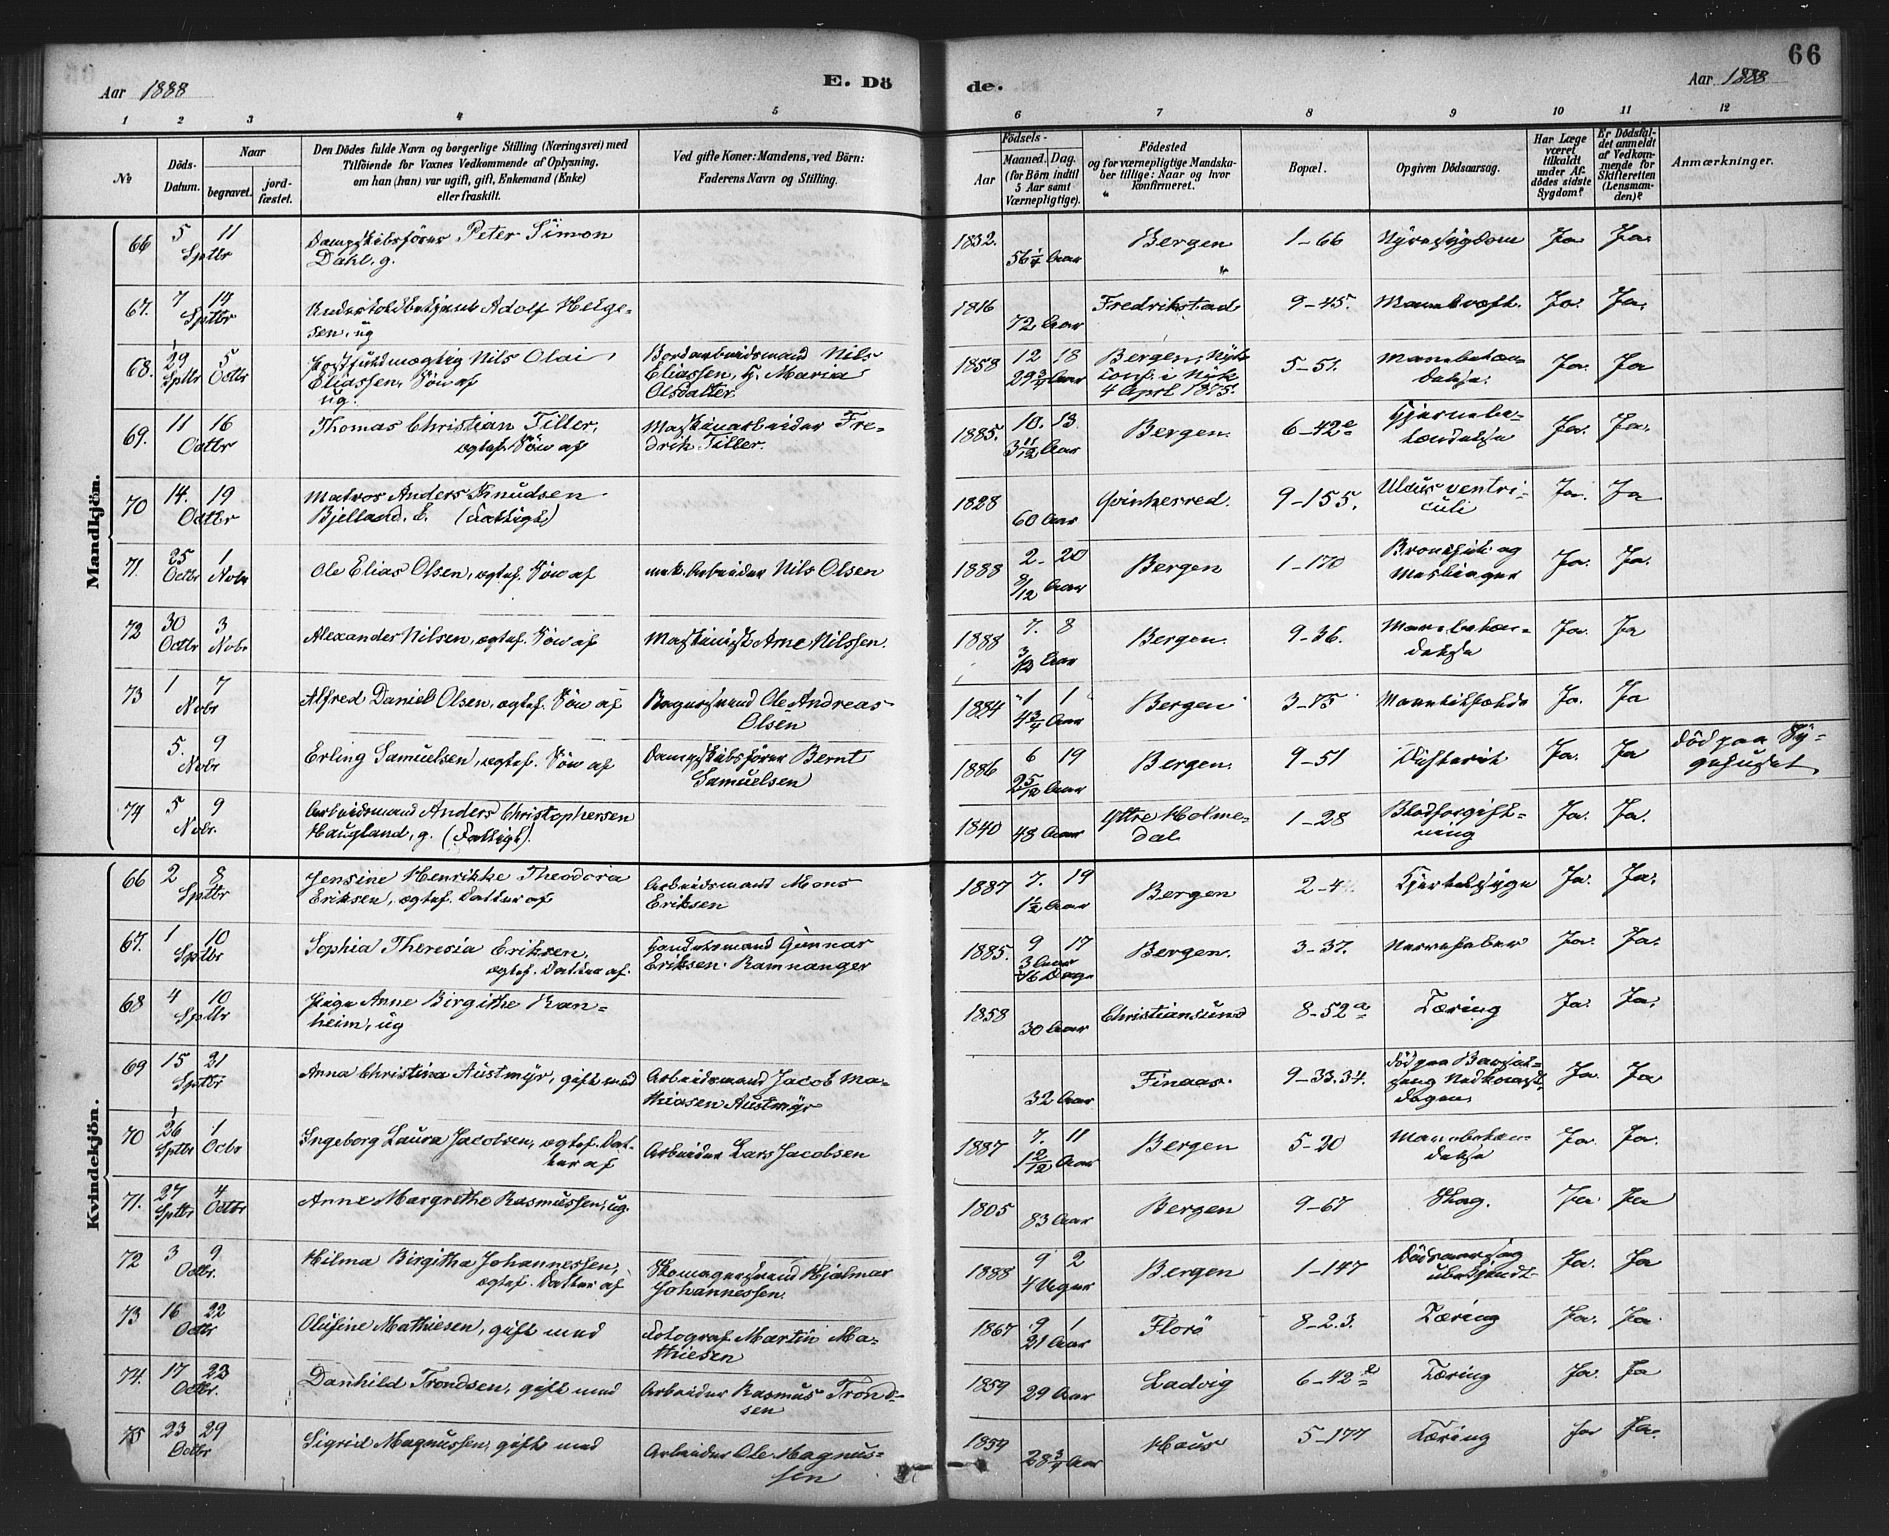 66
Aar 1888
E. Döde.
Aar 1888
1 2 3 4 5 6 7 8 9 10 11 12
No
Döds-Datum.
Naar
begravet.
jord-fæstet.
Den Dödes fulde Navn og borgerlige Stilling (Næringsvei) med
Tilföiende for Voxnes Vedkommende af Oplysning.
om han (hun) var ugift, gift, Enkemand (Enke)
eller fraskilt.
Ved gifte Koner: Mandens, ved Börn:
Faderens Navn og Stilling.
Födsels-
Aar
Maaned. Dag.
(for Börn indtil
5 Aar samt
Værnepligtige).
Födested
og for værnepligtige Mandska-
ber tillige: Naar og hvor
konfirmeret.
Bopæl.
Opgiven Dödsaarsag.
Har Læge
været
tilkaldt
under Af-
dödes sidste
Sygdom?
Er Dödsfal-
det anmeldt
af Vedkom-
mende for
Skifteretten
(Lensman-
den)?
Anmærkninger.
Mandkjön.
66 5 Sptbr 11 Dampskibsförer Peter Simon
Dahl, g. 1832. 56 1/4 Aar Bergen 1-66 Nyresygdom Ja Ja.
67. 7 14 Sptbr Undertoldbetjent Adolf Helge-
sen, ug 1816 72 Aar Fredrikstad 9-45. Mavekræft. Ja. Ja.
68. 29 Sptbr 5 Octbr Postfuldmægtig Nils Olai
Eliassen, Sön af
ug. Bordarbeidsmand Nils
Eliassen, h. Maria
Olsdatter 1858 12 18 29 3/4 Aar Bergen, Nyk.
Conf. i Nyk
4 April 1875. 5-51. Mavebetæn-
delse. Ja. Ja
69. 11 16 Octbr Thomas Christian Tiller,
ægtef. Sön af Maskinarbeider Fre-
drik Tiller. 1885. 10. 13. 3 11/12 Aar Bergen. 6-42e Hjernebe-
tændelse Ja. Ja.
70 14. 19 Octbr Matros Anders Knudsen
Bjelland, E. (Fattigl) 1828 60 Aar Qvinherred. 9-155. Ulcus ventri-
culi Ja. Ja
71. 25 Octbr 1 Nobr Ole Elias Olsen, ægtef. Sön af mek. Arbeider Nils Olsen 1888 2. 20 8/12 Aar Bergen 1-170 Bronchit og
Meslinger Ja. Ja.
72 30 Octbr 3 Nobr Alexander Nilsen, ægtef. Sön af Maskinist Arne Nilssen. 1888 7. 8 3/12 Aar Bergen. 9-36. Mavebetæn-
delse Ja. Ja
73 1 7 Nobr Alfred Daniel Olsen, ægtef. Sön af Bagersvend Ole Andreas
Olsen 1884 1 1 4 3/4 Aar Bergen 3-75 Mavetilfælde Ja. Ja
5. 9 Nobr Erling Samuelsen, ægtef. Sön af Dampskibsförer Bernt
Samuelsen 1886 6 19 2 5/12 Aar Bergen. 9-51 Difterit Ja. Ja död paa Sy-
gehuset
74 5 9 Nobr. Arbeidsmand Anders Christophersen
Haugland, g. (Fattigl). 1840 48 Aar Yttre Holme-
dal 1-28 Blodforgift-
ning Ja. Ja.
Kvindekjön.
66 2 8 Sptbr Jensine Henrikke Theodora
Eriksen, ægtef. Datter af Arbeidsmand Mons
Eriksen 1887 7. 19 1 1/2 Aar Bergen 2-4 Kjertelsyge Ja. Ja.
67. 1 10 Sptbr Sophia Theresia Eriksen,
ægtef. Datter af. Handelsmand Gunnar
Eriksen Ramnanger 1885. 9 17 3 Aar
16 Dage Bergen. 3-37. Nervefeber Ja. Ja.
68 4 10 Sptbr Pige Anne Birgithe Ran-
heim, ug 1858 30 Aar Christiansund 8-52a Tæring Ja. Ja.
69 15 21 Sptbr Anna Christina Austmyr, gift med Arbeidsmand Jacob Ma-
thiesen Austmyr 32 Aar Finaas. 9-33.34. Död paa Barsel-
seng Nedkomst-
dagen. Ja. Ja
70 26 Sptbr 1 Octbr Ingeborg Laura Jacobsen, ægtef. Dat-
ter af Arbeider Lars Jacobsen 1887 7. 11 1 2/12 Aar Bergen 5-20 Mavebetæn-
delse Ja. Ja.
71. 27 Sptbr 4 Octbr Anne Margrethe Rasmussen, ug. 1805 83 Aar Bergen 9-67 Slag. Ja. Ja
72 3 9 Octbr. Hilma Birgitha Johannessen,
ægtef. Datter af Skomagersvend Hjalmar
Johannessen. 1888 9 2 4 Uger Bergen 1-147 Dödsaarsag
ubekjendt Ja. Ja
73 16 22 Octbr Olufine Mathiesen, gift med Fotograf Martin Ma-
thiesen 1867 9 1 21 Aar Florö 8-2.3. Tæring Ja. Ja.
74. 17 23 Octbr. Danhild Trondsen, gift med Arbeider Rasmus Trond-
sen 1859 29 Aar Ladvig 6-42e Tæring Ja. Ja
75 23 29 Octbr Sigrid Magnussen, gift med Arbeider Ole Magnus-
sen 1859 28 3/4 Aar Haus 5-177 Tæring Ja Ja.